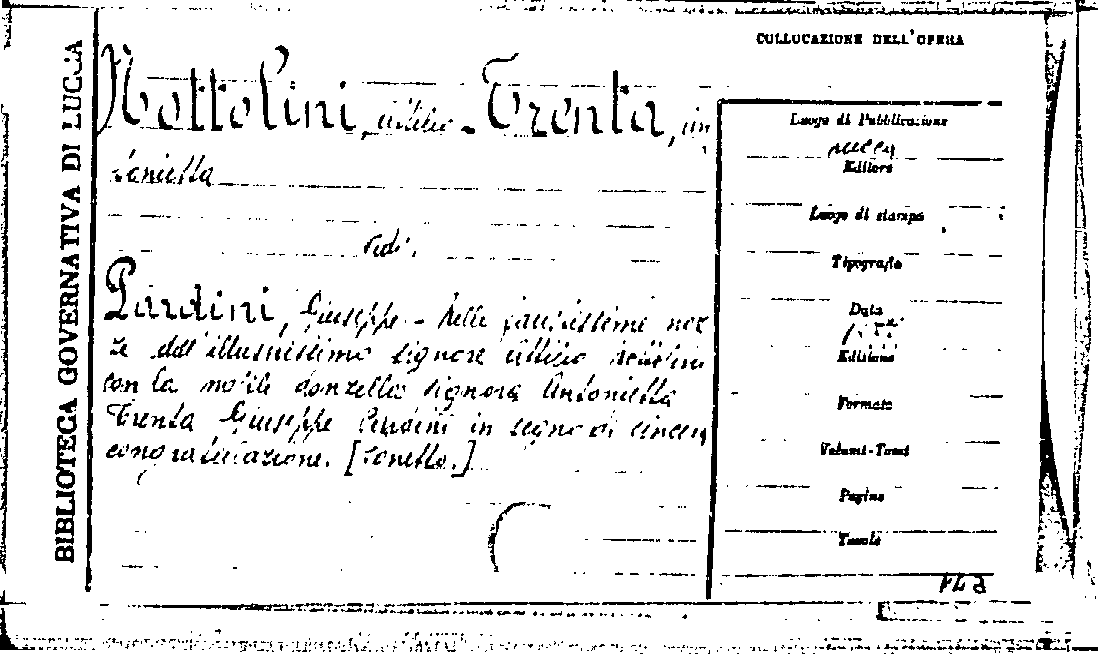 BIBLIOTECA GOVERNATIVA DI LUCCA
COLLOCAZIONE DELL'OPERA
Nottolini, Attilio - Trenta, An
tonietta
Vedi.
Pardini, Giuseppe - Nelle faustissime noz
ze dell'illustrissimo signore Attilio Nottolini
con la nobile donzella signora Antonietta
Trenta Giuseppe Pardini in segno di sincera
congratulazione. [Sonetto.]
Luogo di Pubblicazione
Lucca
Editore
Luogo di stampa
Tipografia
Data
Edizione
Formato
Volumi-Tomi
Pagine
Tavole